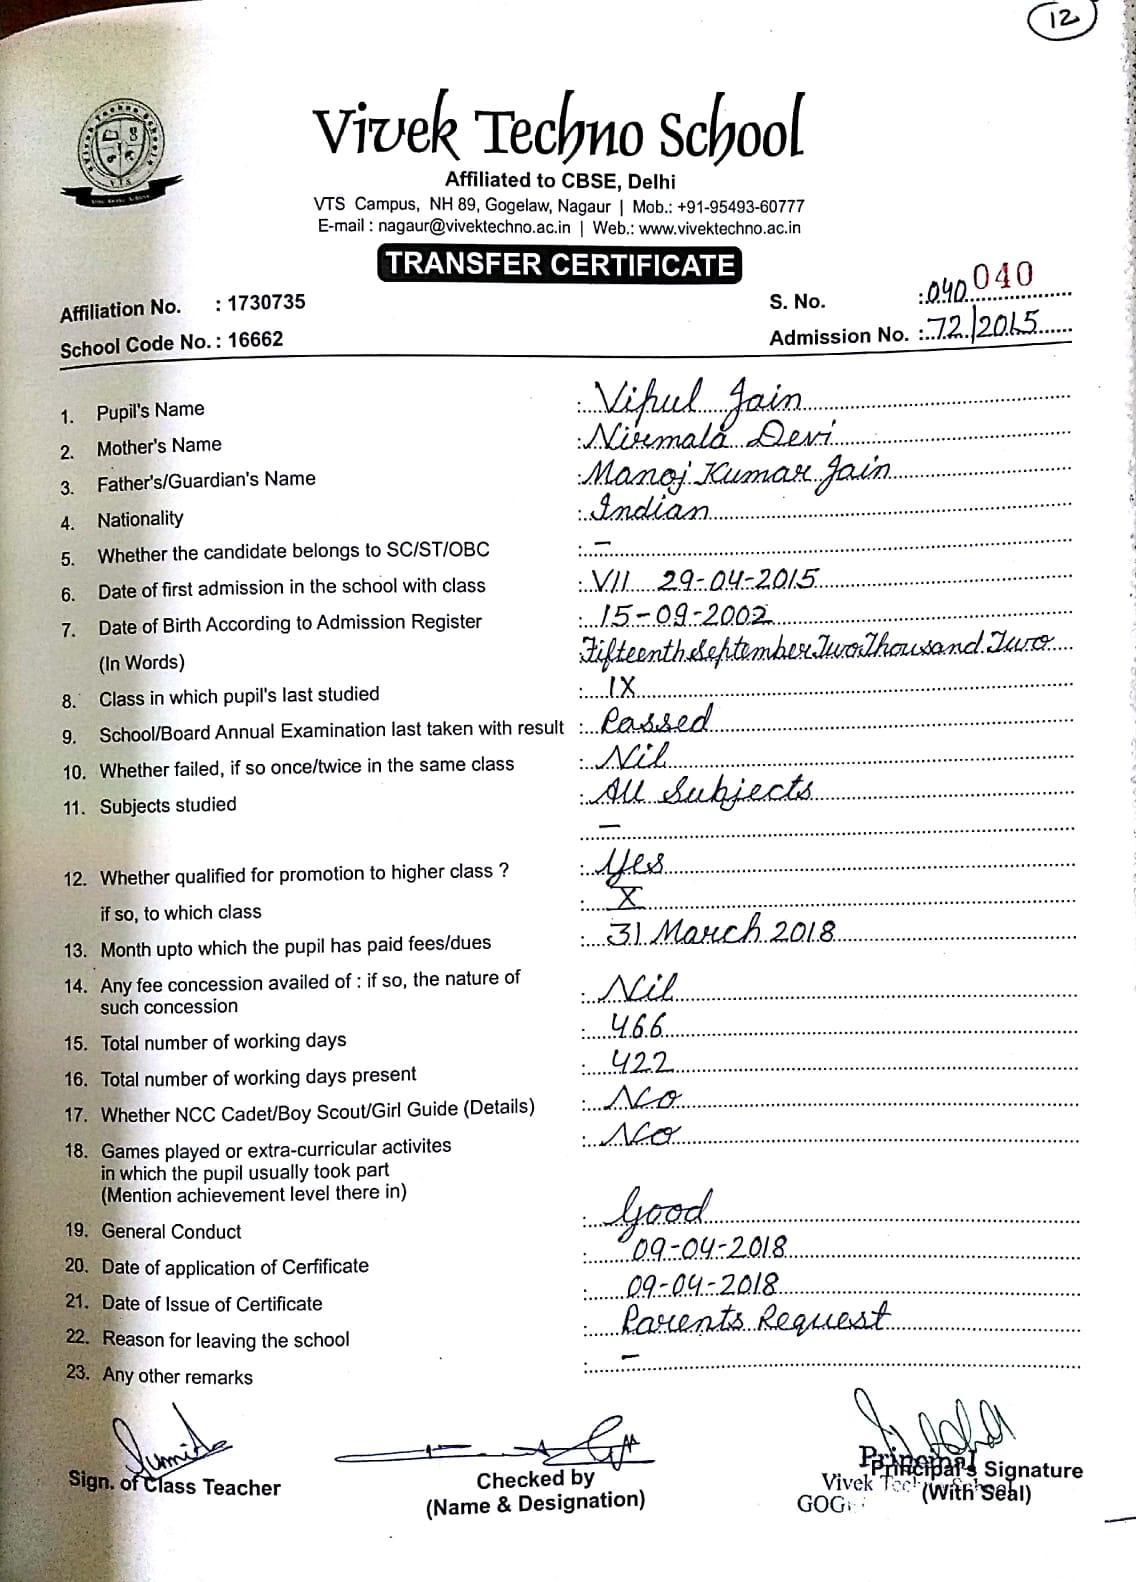 12
Vivek Techno School
Affiliated to CBSE, Delhi
VTS Campus, NH 89, Gogelaw, Nagaur | Mob.: +91-95493-60777
E-mail : nagaur@vivektechno.ac.in | Web.: www.vivektechno.ac.in
TRANSFER CERTIFICATE
Affiliation No. : 1730735 S. No. : 040 040
School Code No. : 16662 Admission No. : 72/2015
1. Pupil's Name : Vipul Jain
2. Mother's Name : Nirmala Devi
3. Father's/Guardian's Name : Manoj Kumar Jain
4. Nationality : Indian
5. Whether the candidate belongs to SC/ST/OBC : –
6. Date of first admission in the school with class : VII 29-04-2015
7. Date of Birth According to Admission Register : 15-09-2002
(In Words) Fifteenth September Two Thousand Two
8. Class in which pupil's last studied : IX
9. School/Board Annual Examination last taken with result : Passed
10. Whether failed, if so once/twice in the same class : Nil
11. Subjects studied : All Subjects
–
12. Whether qualified for promotion to higher class ? : Yes
if so, to which class : X
13. Month upto which the pupil has paid fees/dues : 31 March 2018
14. Any fee concession availed of : if so, the nature of
such concession : Nil
15. Total number of working days : 466
16. Total number of working days present : 422
17. Whether NCC Cadet/Boy Scout/Girl Guide (Details) : No
18. Games played or extra-curricular activites : No
in which the pupil usually took part
(Mention achievement level there in)
19. General Conduct : Good
20. Date of application of Cerfificate : 09-04-2018
21. Date of Issue of Certificate : 09-04-2018
22. Reason for leaving the school : Parents Request
23. Any other remarks : –
Sign. of Class Teacher
Checked by
(Name & Designation)
Principal
Principal's Signature
Vivek
(With Seal)